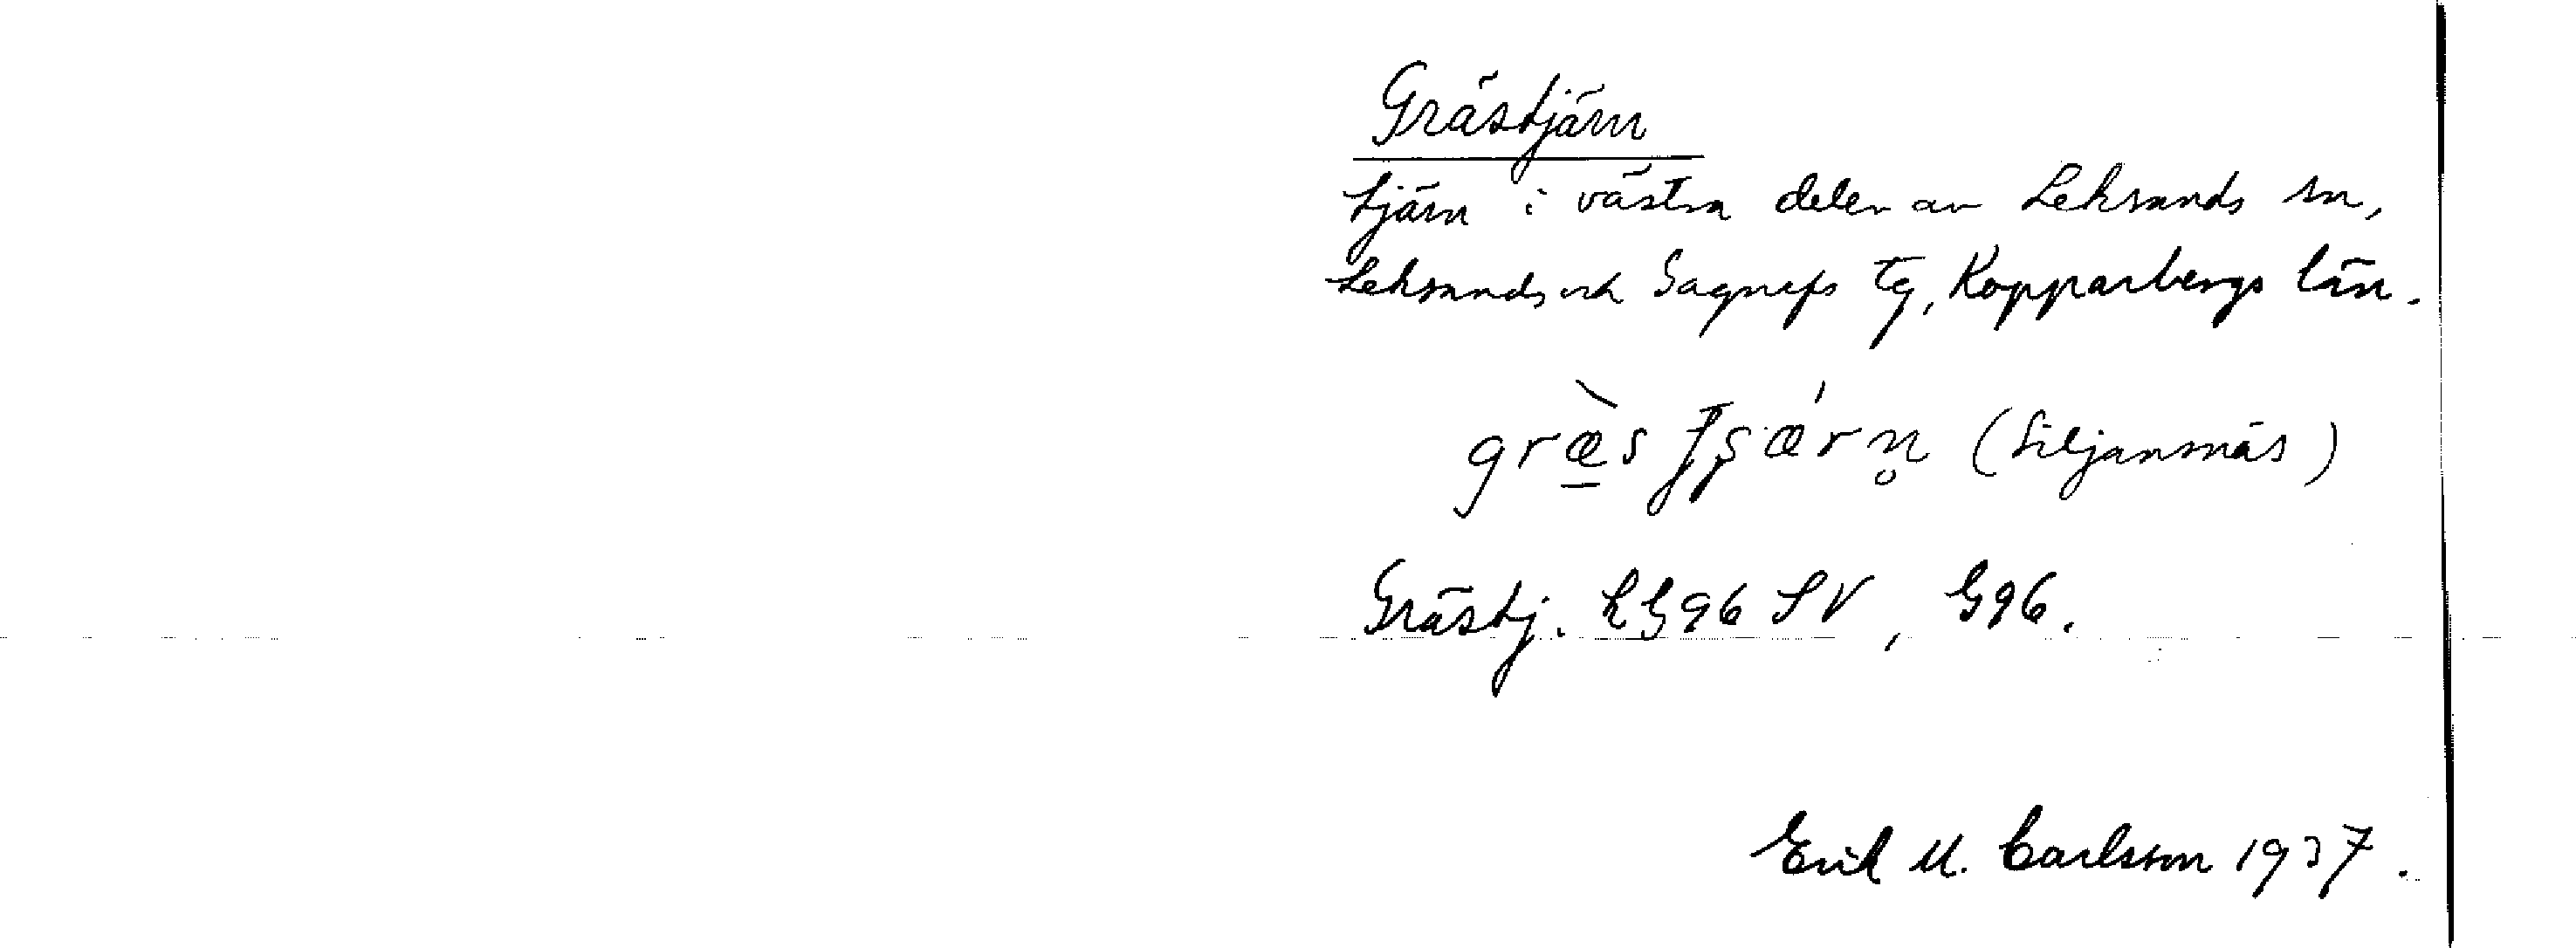 Grästjärn
tjärn i västra delen av Leksands sn,
Leksands och Gagnefs tg, Kopparbergs län.
(Siljansnäs)
Grästj. KG96 SV, G96.
Erik M. Carlsson 1937.